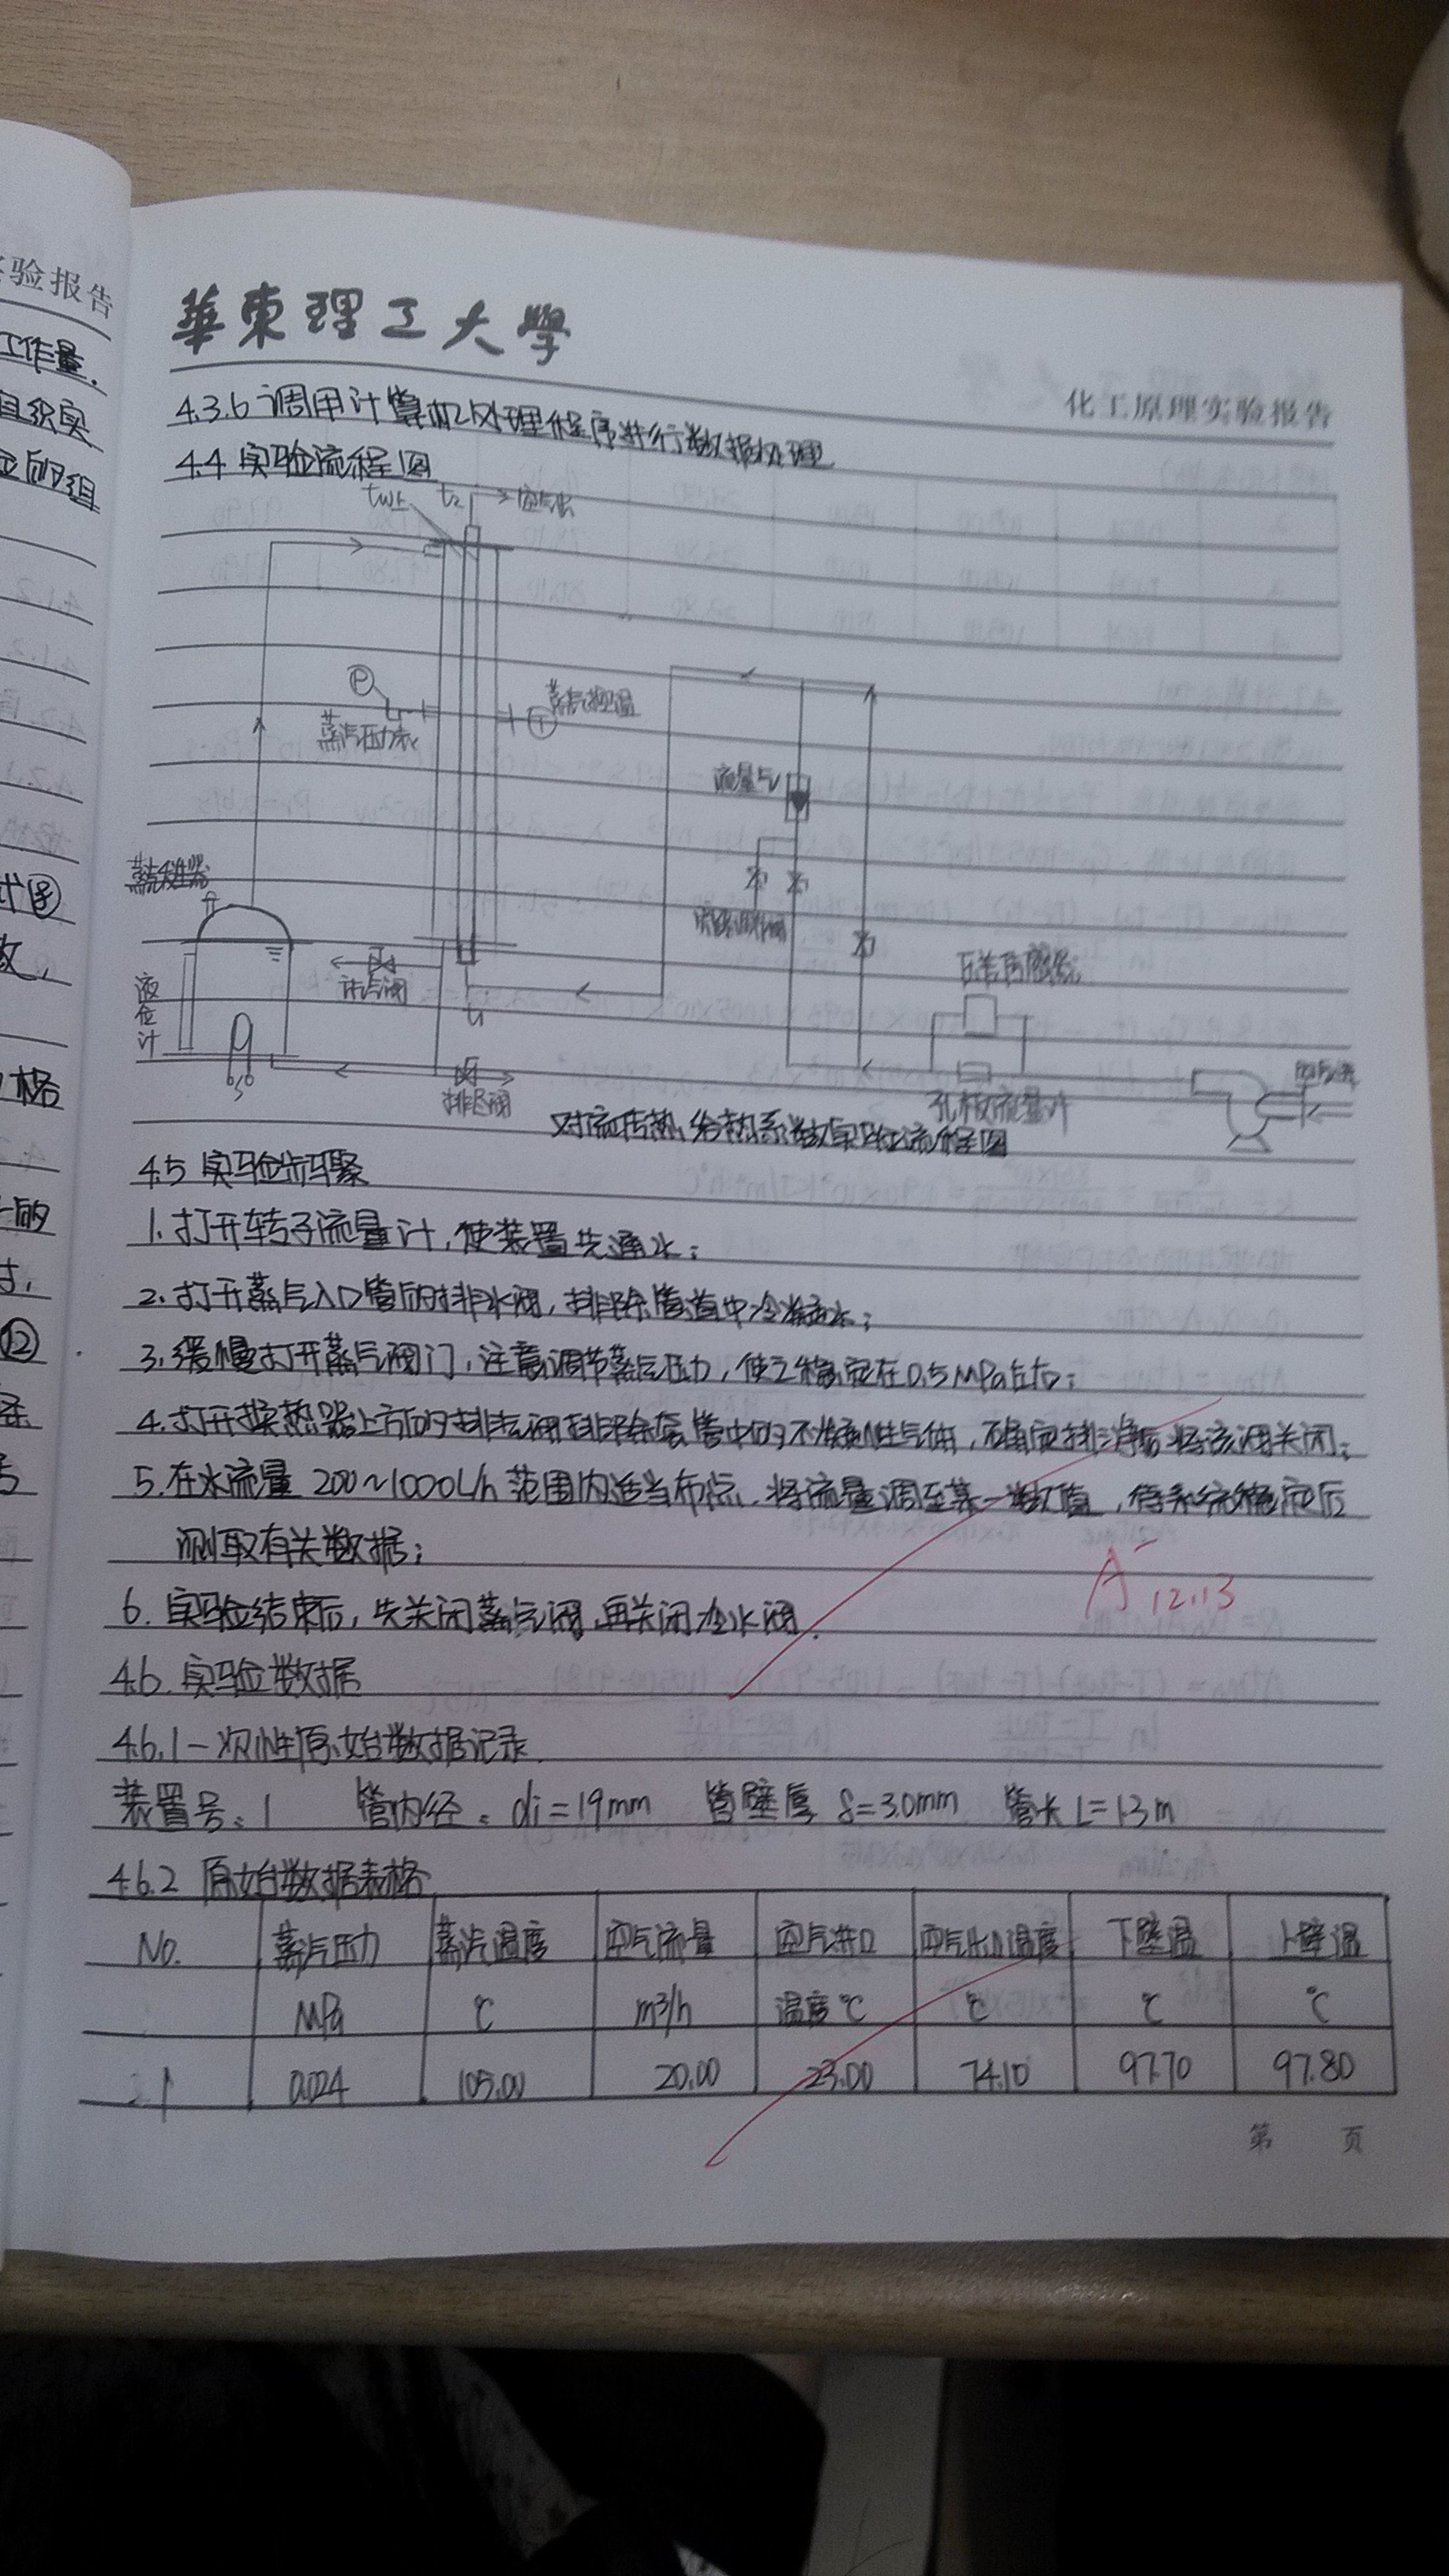 验报告
工作量.
组
格
的
华
華東理工大學
化工原理实验报告
4.3.6 调用计算机处理程序进行数据处理
4.4 实验流程图
tw上 t2 空气出
P
蒸汽压力表
T 蒸汽控温
流量计
蒸汽发生器
液位计
t1
排气阀
孔板流量计
对流传热给热系数实验流程图
4.5 实验步骤
1. 打开转子流量计,使装置先通水;
2. 打开蒸气入口管前的排水阀,排除管道中冷凝水;
3. 缓慢打开蒸气阀门,注意调节蒸气压力,使之稳定在0.5MPa左右;
4. 打开换热器上方的排气阀排除套管中的不凝性气体,确定排净后将该阀关闭;
5. 在水流量 200~1000L/h 范围内适当布点,将流量调至某一数值,待系统稳定后
测取有关数据;
6. 实验结束后,先关闭蒸气阀,再关闭冷水阀.
A⁻ 12.13
4.6. 实验数据
4.6.1 一次性原始数据记录.
装置号:1 管内径:di=19mm 管壁厚 δ=3.0mm 管长 L=1.3m
4.6.2 原始数据表格
No. 蒸汽压力 蒸汽温度 空气流量 空气进口 空气出口温度 下壁温 上壁温
MPa ℃ m³/h 温度℃ ℃ ℃ ℃
1 0.024 105.00 20.00 23.00 74.10 97.70 97.80
第 页